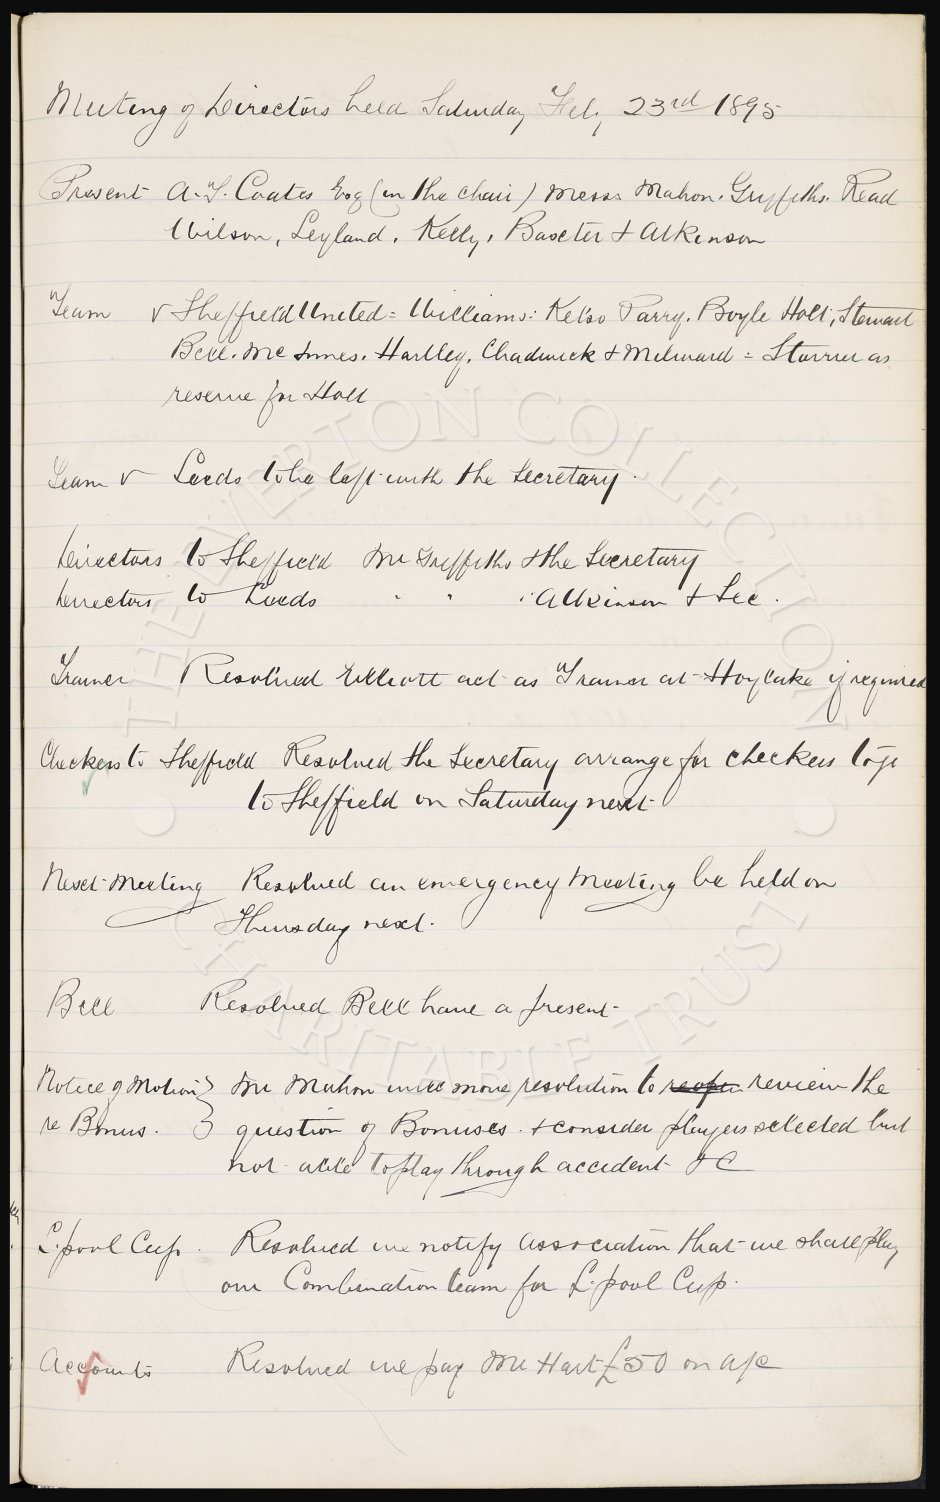 Meeting of Directors held Saturday Feb, 23rd 1895
Present A. T. Coates Esq (in the chair) Messrs Mahon. Griffiths. Read
Wilson, Leyland, Kelly, Baxter & Atkinson
Team v Sheffield United = Williams: Kelso Parry. Boyle Holt, Stewart
Bell. McInnes. Hartley, Chadwick & Milward = Storrier as
reserve for Holt
Team v Leeds to be left with the Secretary.
Directors to Sheffield Mr Griffiths & the Secretary
Directors to Leeds " " " Atkinson & Sec.
Trainer Resolved Elliott act as Trainer at Hoylake if required
Checkers to Sheffield Resolved the Secretary arrange for checkers to go
to Sheffield on Saturday next
Next Meeting Resolved an emergency meeting be held on
Thursday next.
Bell Resolved Bell have a present
Notice of Motion } Mr Mahon will move resolution to reopen review the
re Bonus. } question of Bonuses. & consider players selected but
not able to play through accident &C
L.pool Cup. Resolved we notify Association that we shall play
our Combination team for L.pool Cup.
Accounts Resolved we pay Mr Hart £50 on a/c
THE EVERTON COLLECTION
CHARITABLE TRUST